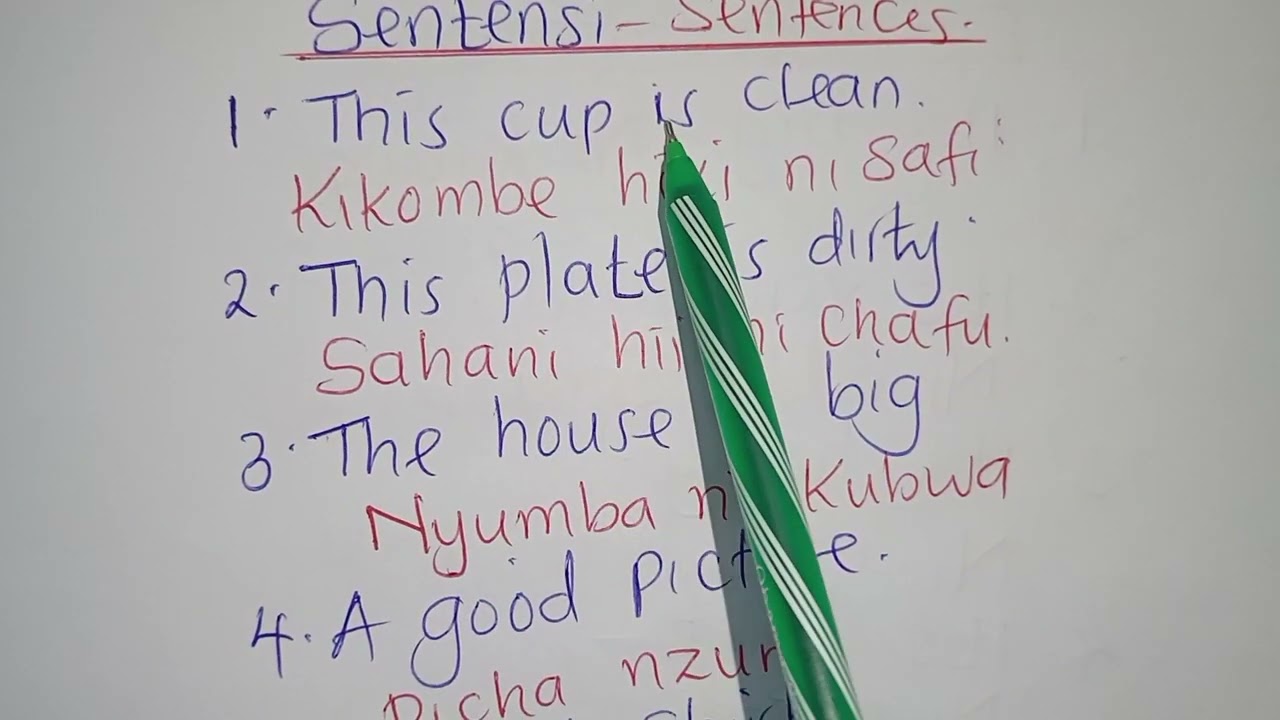 Sentensi - Sentences.
1. This cup is clean.
Kikombe hiki ni safi
2. This plate is dirty.
Sahani hii ni chafu.
3. The house big
Nyumba ni Kubwa
4. A good picture.
Picha nzuri